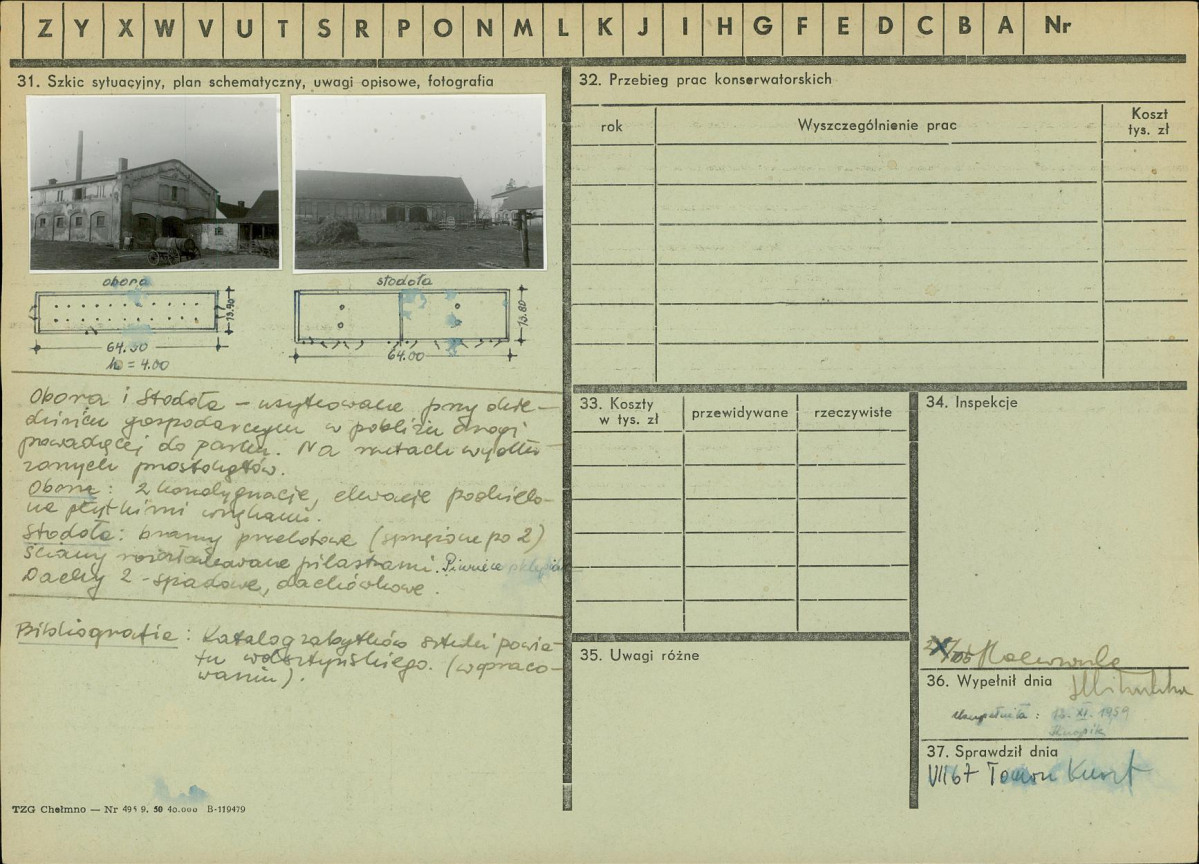 Z Y X W V U T S R P O N M L K J I H G F E D C B A Nr
31. Szkic sytuacyjny, plan schematyczny, uwagi opisowe, fotografia
obora
stodoła
13.90
64.50
h = 4.00
13.80
64.00
Obora i stodoła – usytuowane przy dzie-
dzińcu gospodarczym w pobliżu drogi
prowadzącej do parku. Na rzutach wydłu-
żonych prostokątów.
Obora: 2 kondygnacje, elewacje podzielo-
ne płytkimi wnękami.
Stodoła: bramy przelotowe (sprzężone po 2)
ściany rozczłonkowane pilastrami. Piwnice
Dachy 2-spadowe, dachówkowe.
Bibliografia: Katalog zabytków sztuki powia-
tu wolsztyńskiego. (w praco-
waniu).
TZG Chełmno — Nr 495 9. 50 40.000 B-119479
32. Przebieg prac konserwatorskich
rok
Wyszczególnienie prac
Koszt
tys. zł
33. Koszty
w tys. zł
przewidywane
rzeczywiste
34. Inspekcje
35. Uwagi różne
36. Wypełnił dnia
Uzupełniła: XI. 1959
37. Sprawdził dnia
VII 67